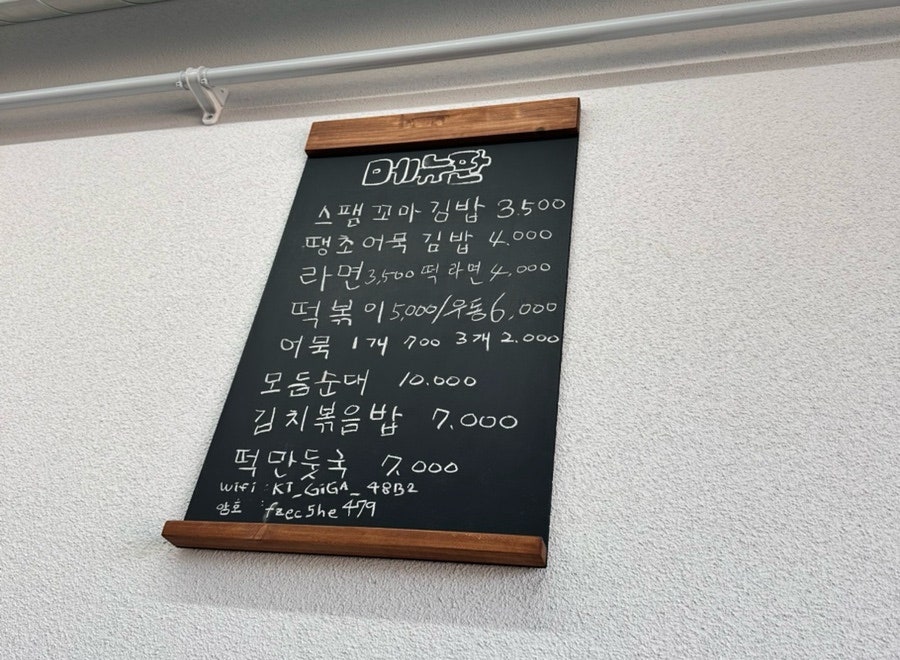 메뉴판
스팸 꼬마 김밥 3.500
땡초어묵 김밥 4.000
라면3,500 떡라면4,000
떡볶이5,000/우동6,000
어묵 1개 700 3개 2.000
모듬순대 10.000
김치볶음밥 7.000
떡만둣국 7.000
Wifi : KT_GiGA_48B2
암호 : fzec5he479